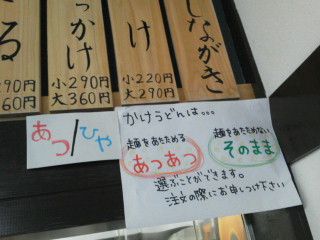 しながき
け
小220円
大290円
っかけ
小290円
大360円
る
290円
360円
あつ/ひや
かけうどんは。。。
麺をあたためる
あつあつ
麺をあたためない
そのまま
選ぶことができます。
注文の際にお申しつけ下さい